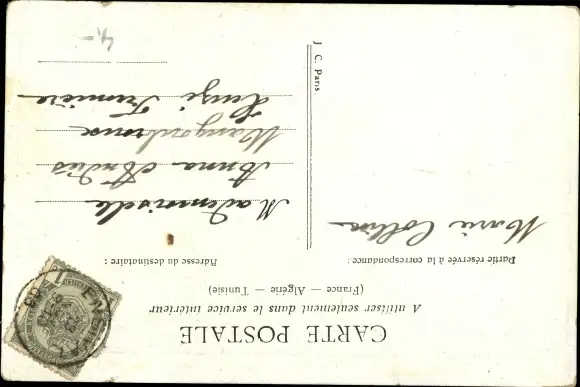 CARTE POSTALE
A utiliser seulement dans le service intérieur
(France — Algérie — Tunisie)
Partie réservée à la correspondance :
Adresse du destinataire :
Marie Collin
Mademoiselle
Anna
Leuze
J. C. Paris
4-